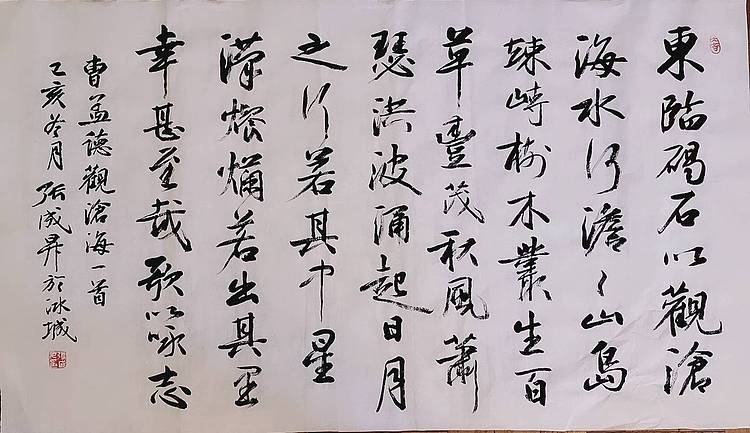 東臨碣石以觀滄
海水何澹〻山島
竦峙樹木叢生百
草豐茂秋風蕭
瑟洪波涌起日月
之行若其中星
漢燦爛若出其里
幸甚至哉歌以詠志
曹孟德觀滄海一首
己亥冬月張成昇於冰城